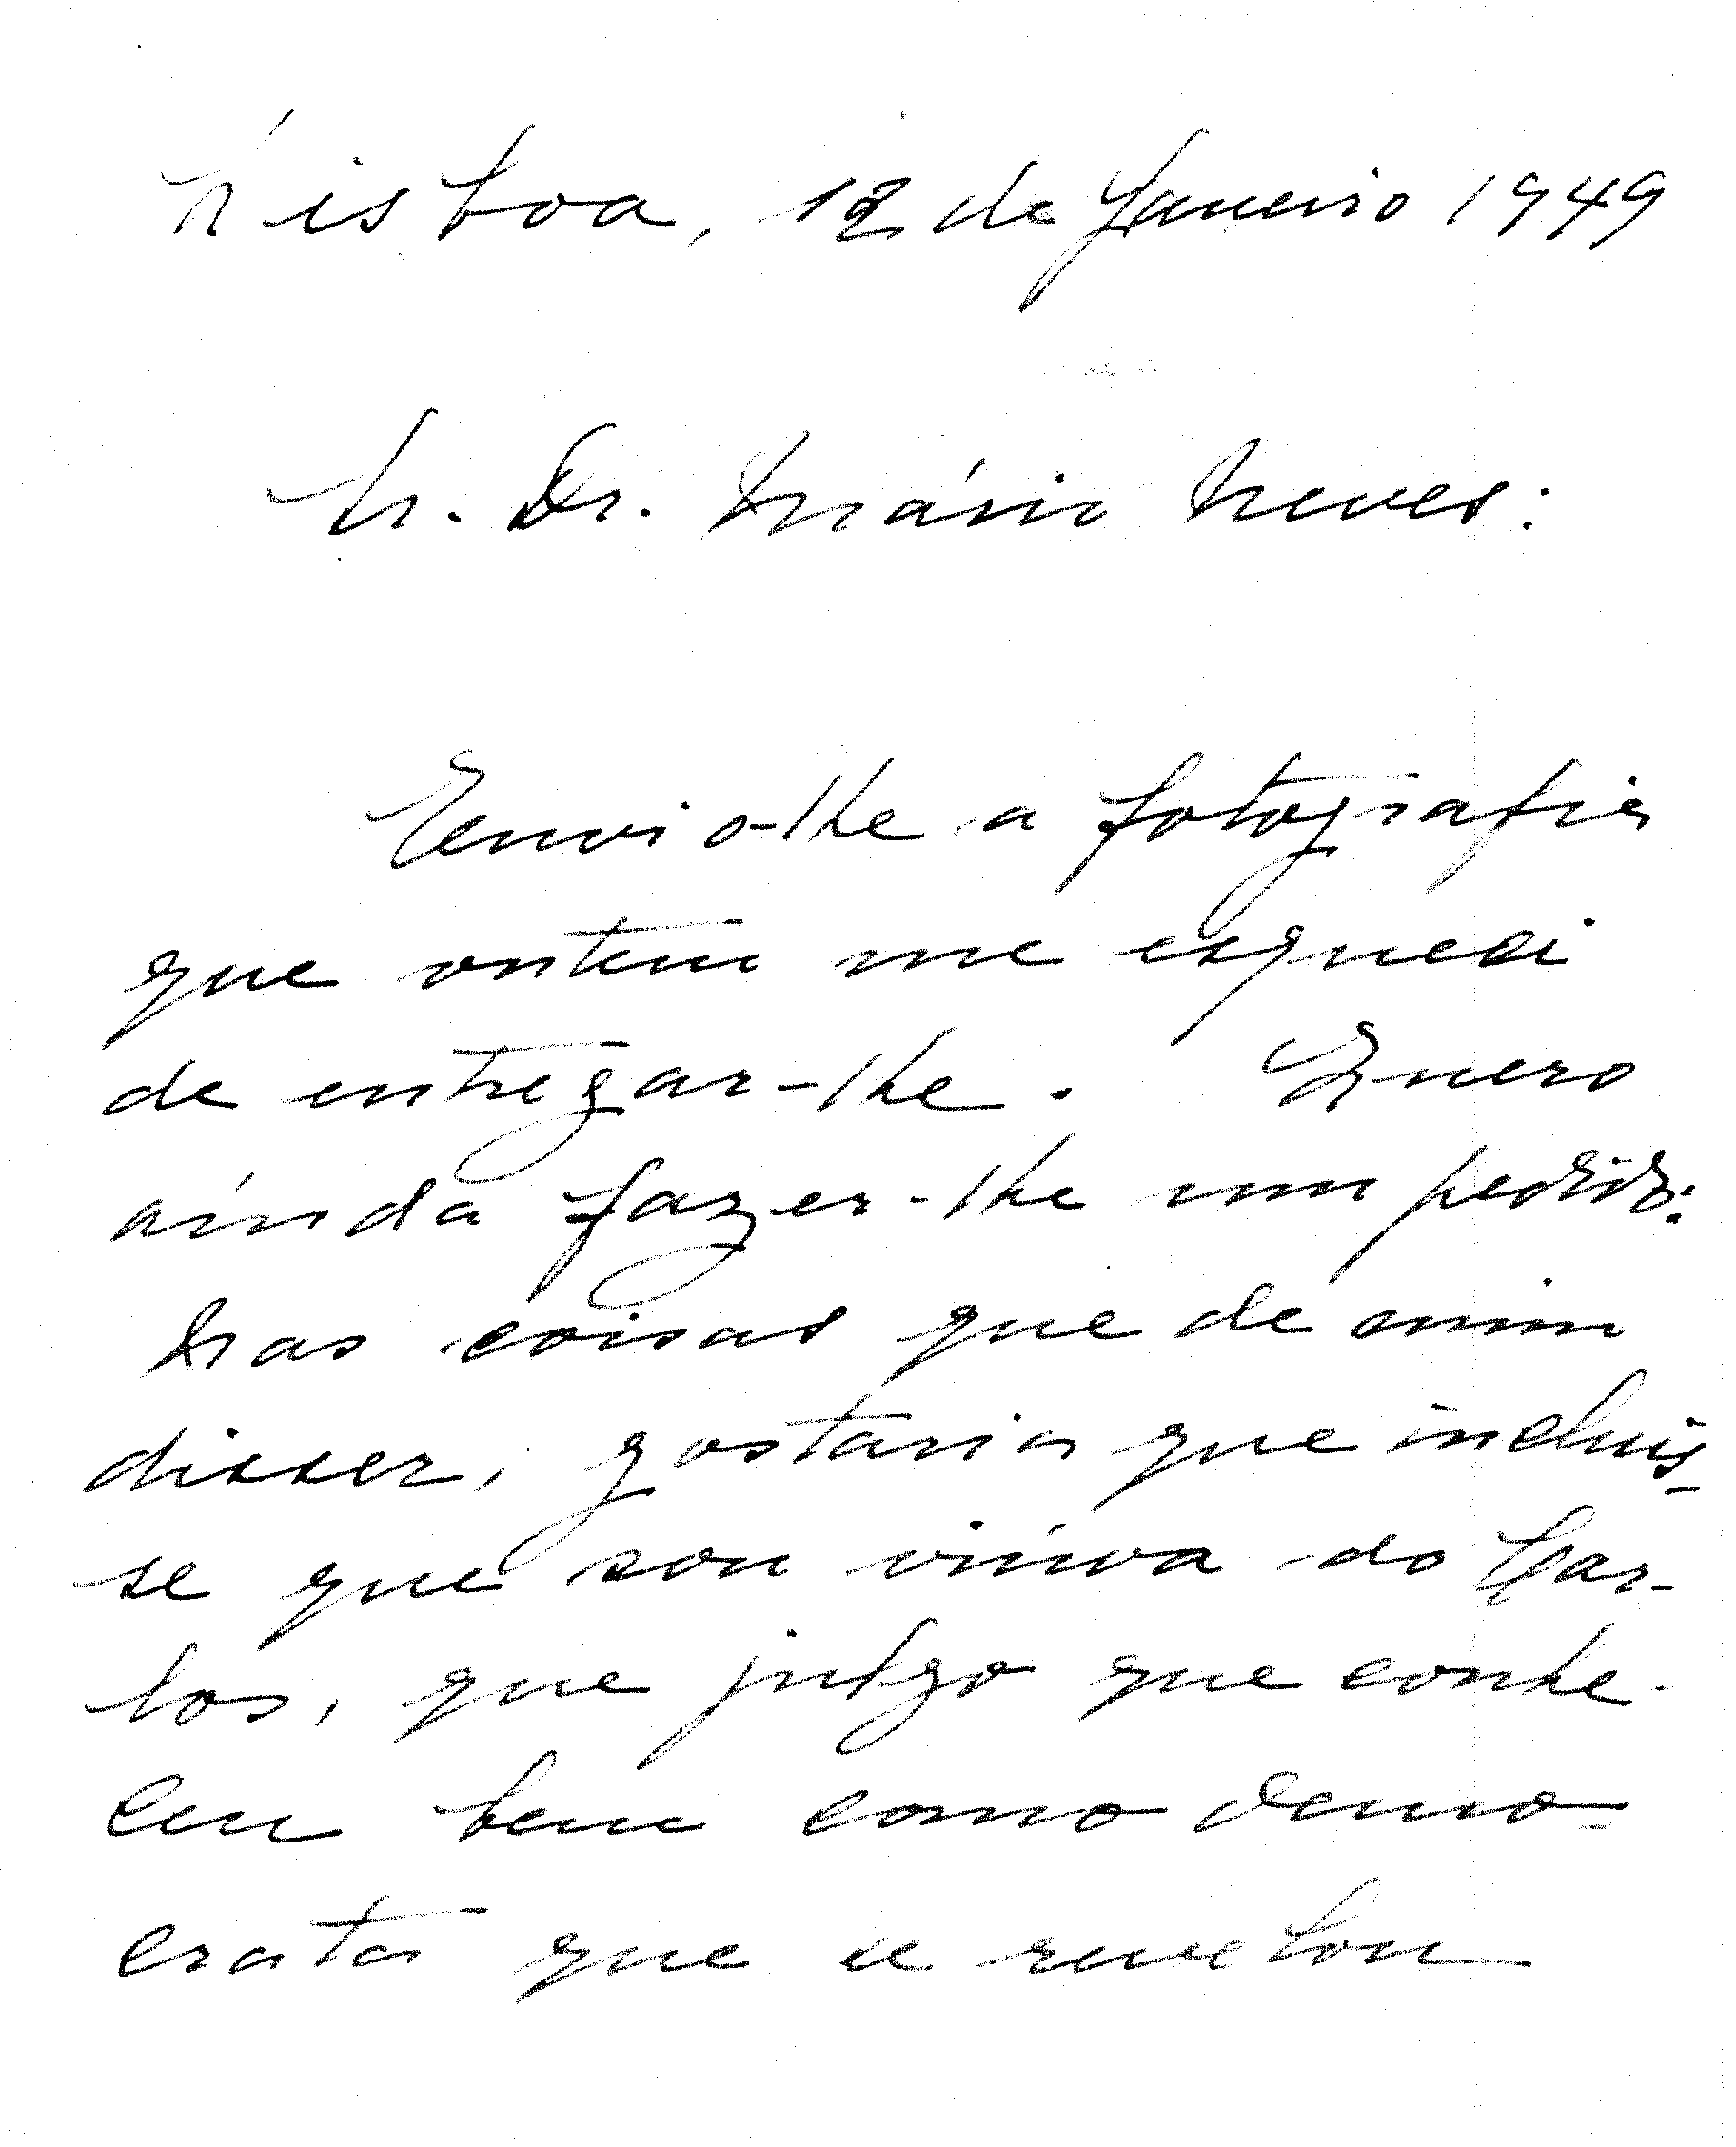 Lisboa, 12 de Janeiro 1949
Sr. Dr. Mário Neves:
Envio-lhe a fotografia
que ontem me esqueci
de entregar-lhe. Quero
ainda fazer-lhe um pedido:
Nas coisas que de mim
disser, gostaria que incluis-
se que sou viúva do Car-
los, que julgo que conhe-
ceu bem como demo-
crata que se revelou